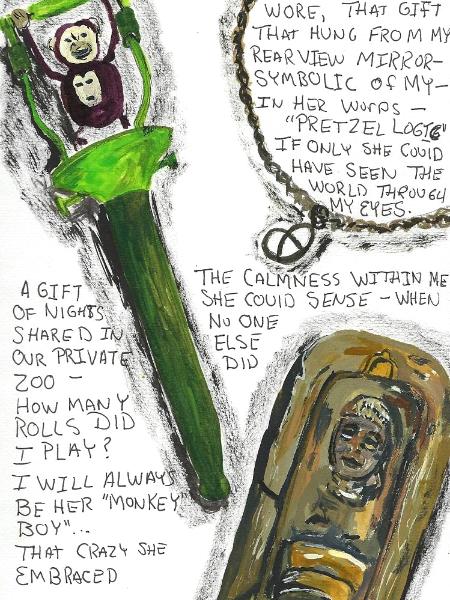 WORE, THAT GIFT
THAT HUNG FROM MY
REARVIEW MIRROR-
SYMBOLIC OF MY-
IN HER WORDS -
"PRETZEL LOGIC"
IF ONLY SHE COULD
HAVE SEEN THE
WORLD THROUGH
MY EYES.
THE CALMNESS WITHIN ME
SHE COULD SENSE - WHEN
NO ONE
ELSE
DID
A GIFT
OF NIGHTS
SHARED IN
OUR PRIVATE
ZOO -
HOW MANY
ROLLS DID
I PLAY?
I WILL ALWAYS
BE HER "MONKEY
BOY"...
THAT CRAZY SHE
EMBRACED